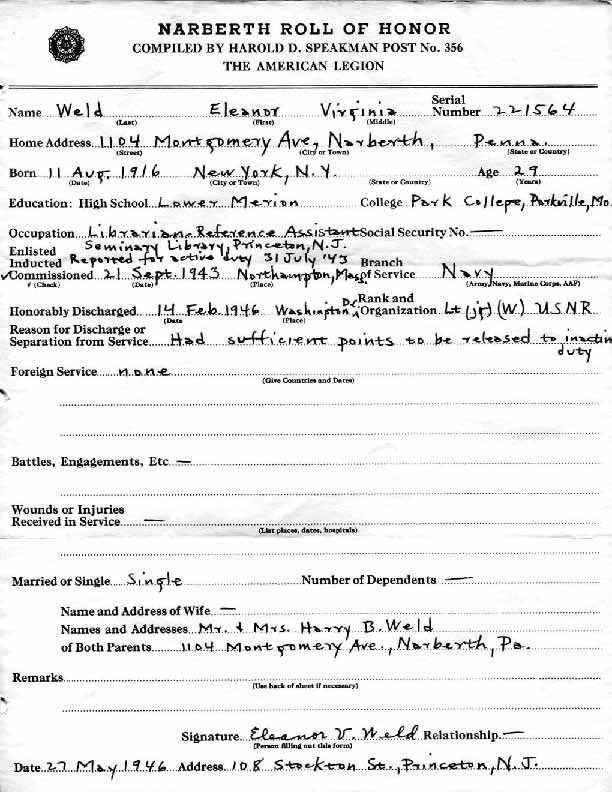 NARBERTH ROLL OF HONOR
COMPILED BY HAROLD D. SPEAKMAN POST No. 356
THE AMERICAN LEGION
Name Weld Eleanor Virginia Serial Number 221564
(Last) (First) (Middle)
Home Address 1104 Montgomery Ave, Narberth, Penna.
(Street) (City or Town) (State or Country)
Born 11 Aug. 1916 New York, N.Y. Age 29
(Date) (City or Town) (State or Country) (Years)
Education: High School Lower Merion College Park College, Parkville, Mo.
Occupation Librarian-Reference Assistant Social Security No. —
Seminary Library, Princeton, N.J.
Enlisted
Inducted Reported for active duty 31 July '43 Branch
✓Commissioned 21 Sept. 1943 Northampton, Mass. of Service Navy
# (Check) (Date) (Place) (Army, Navy, Marine Corps, AAF)
Honorably Discharged 14 Feb. 1946 Washington DC Rank and Organization Lt (jg) (W) USNR
(Date (Place)
Reason for Discharge or
Separation from Service Had sufficient points to be released to inactive
duty
Foreign Service none
(Give Countries and Dates)
Battles, Engagements, Etc —
Wounds or Injuries
Received in Service —
(List places, dates, hospitals)
Married or Single Single Number of Dependents —
Name and Address of Wife —
Names and Addresses Mr. & Mrs. Harry B. Weld
of Both Parents 1104 Montgomery Ave., Narberth, Pa.
Remarks
(Use back of sheet if necessary)
Signature Eleanor V. Weld Relationship —
(Person filling out this form)
Date 27 May 1946 Address 108 Stockton St., Princeton, N.J.